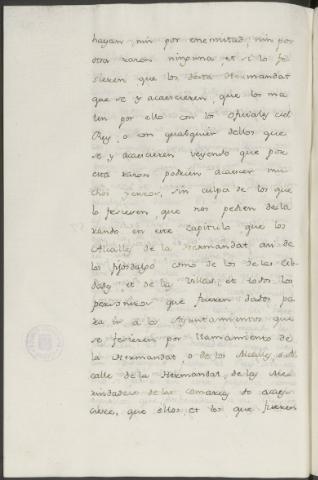 hayan, nin por enemistad, nin por
otra razon ninguna et si lo fi-
sieren que los desta Hermandat
que se y acaescieren, que los ma-
ten por ello con los oficiales del
Rey, o con qualquier dellos que
se y acaescieren veyendo que por
esta razon podrien acaescer mu-
chos yerros, sin culpa de los que
lo fesiesen, que nos piden decla-
rando en este capitulo que los
Alcalles de la Hermandat asi de
los fijosdalgo como de los de las cib-
dades et de las Villas, et todos los
personeros que fueren dados pa-
ra ir a los Ayuntamientos que
se fesieren por llamamiento de
la Hermandat, o de los Alcalles, o Al-
calle de la Hermandat de las Me-
rindades de las comarcas do acaes-
ciere, que ellos, et los que fueren